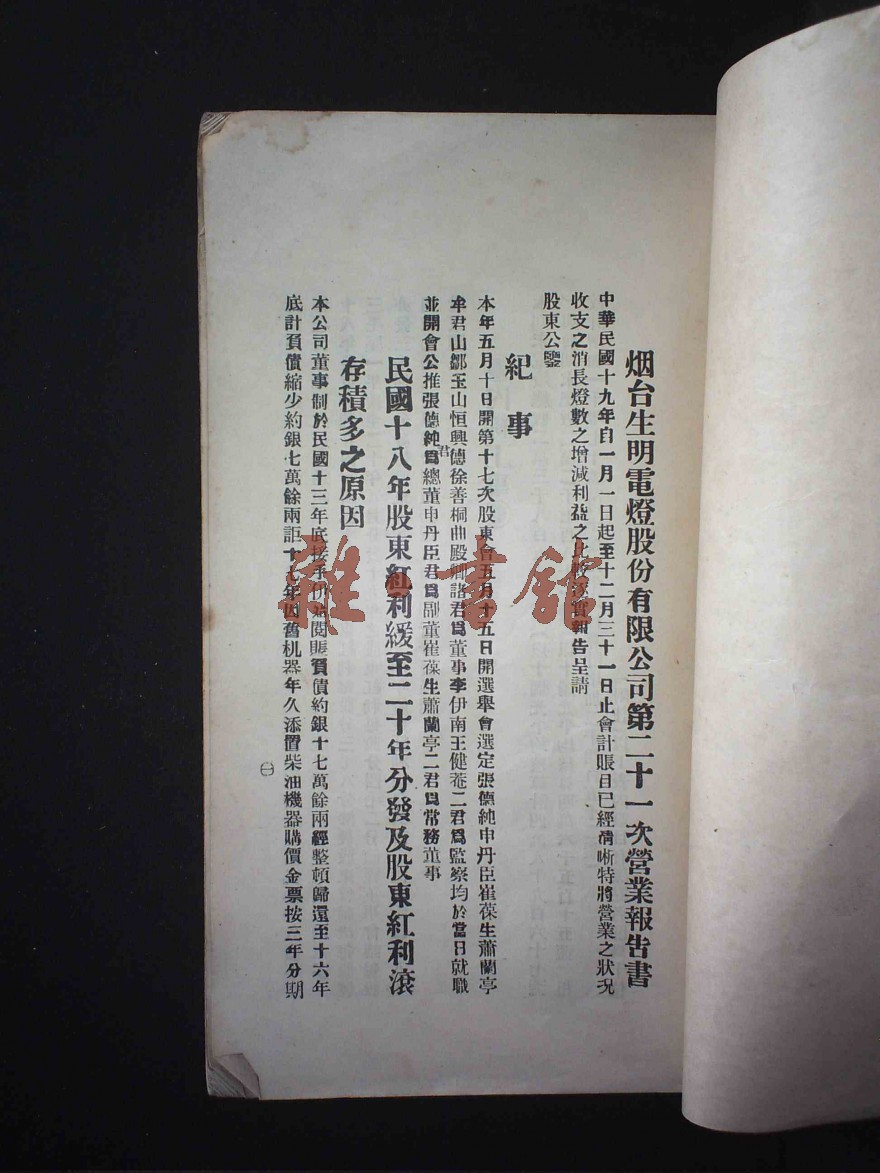 烟台生明電燈股份有限公司第二十一次營業報告書
中華民國十九年自一月一日起至十二月三十一日止會計賬目已經清晰特將營業之狀況
收支之消長燈數之增減利益之比較逐實報告呈請
股東公鑒
紀事
本年五月十日開第十七次股東會五月十五日開選舉會選定張德純申丹臣崔葆生蕭蘭亭
牟君山鄒玉山恒興德徐善桐曲殿卿諸君爲董事李伊南王健菴二君爲監察均於當日就職
並開會公推張德純君爲總董申丹臣君爲副董崔葆生蕭蘭亭二君爲常務董事
民國十八年股東紅利緩至二十年分發及股東紅利滾
存積多之原因
本公司董事制於民國十三年底接手伊始閱賬負債約銀十七萬餘兩經整頓歸還至十六年
底計負債縮少約銀七萬餘兩詎十七年因舊机器年久添置柴油機器購價金票按三年分期
㊀
雜·書館